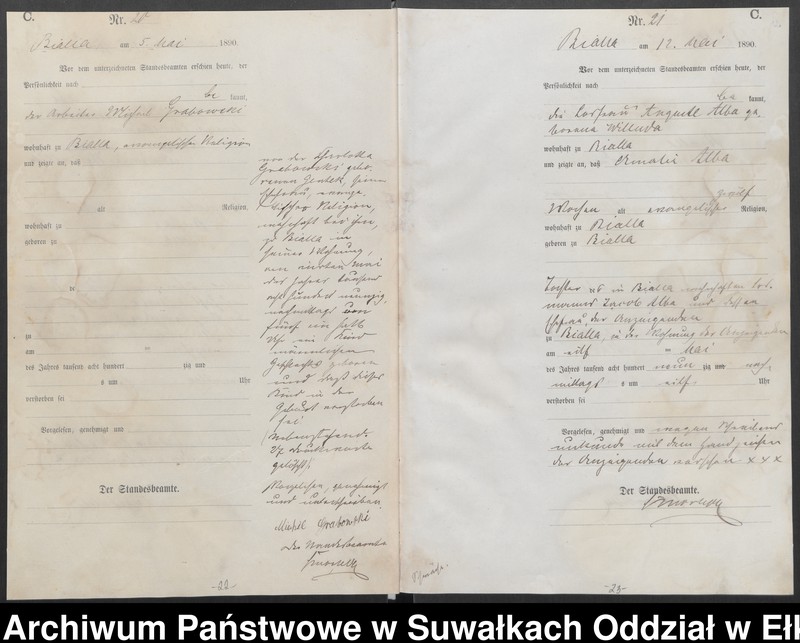 C.
Nr. 20
Bialla am 5. Mai 1890.
Vor dem unterzeichneten Standesbeamten erschien heute, der
Persönlichkeit nach
be kannt,
der Arbeiter Michael Grabowski
wohnhaft zu Bialla, evangelischer Religion
und zeigte an, daß
alt Religion,
wohnhaft zu
geboren zu
de
zu
am "
des Jahres tausend acht hundert zig und
s um Uhr
verstorben sei
Vorgelesen, genehmigt und
Der Standesbeamte.
von der Charlotte
Grabowski gebo-
renen
Ehefrau, evange-
lischer Religion,
wohnhaft bei ihm,
zu Bialla in
seiner Wohnung,
am Mai
des Jahres tausend
acht hundert neunzig
nachmittags um
fünf ein halb
Uhr ein Kind
männlichen
Geschlechts geboren
und daß dieses
Kind in der
Geburt verstorben
sei
Nebenstehende
27 Druckworte
gelöscht.
Vorgelesen, genehmigt
und unterschrieben
Michel Grabowski
der Standesbeamte
-22-
Nr. 21
C.
Bialla am 12. Mai 1890.
Vor dem unterzeichneten Standesbeamten erschien heute, der
Persönlichkeit nach
be kannt,
die Auguste Alba ge-
borene Willuda
wohnhaft zu Bialla
und zeigte an, daß Amalie Alba
zwölf
Wochen alt evangelischer Religion,
wohnhaft zu Bialla
geboren zu Bialla
Tochter des in Bialla wohnhaften
Jacob Alba und dessen
Ehefrau, der Anzeigenden
zu Bialla, in der Wohnung der Anzeigenden
am elf " Mai
des Jahres tausend acht hundert neun zig und nach-
mittags s um elf Uhr
verstorben sei
Vorgelesen, genehmigt und wegen Schreibens
unkunde mit dem Handzeichen
der Anzeigenden versehen x x x
Der Standesbeamte.
-23-
Archiwum Państwowe w Suwałkach Oddział w Eł